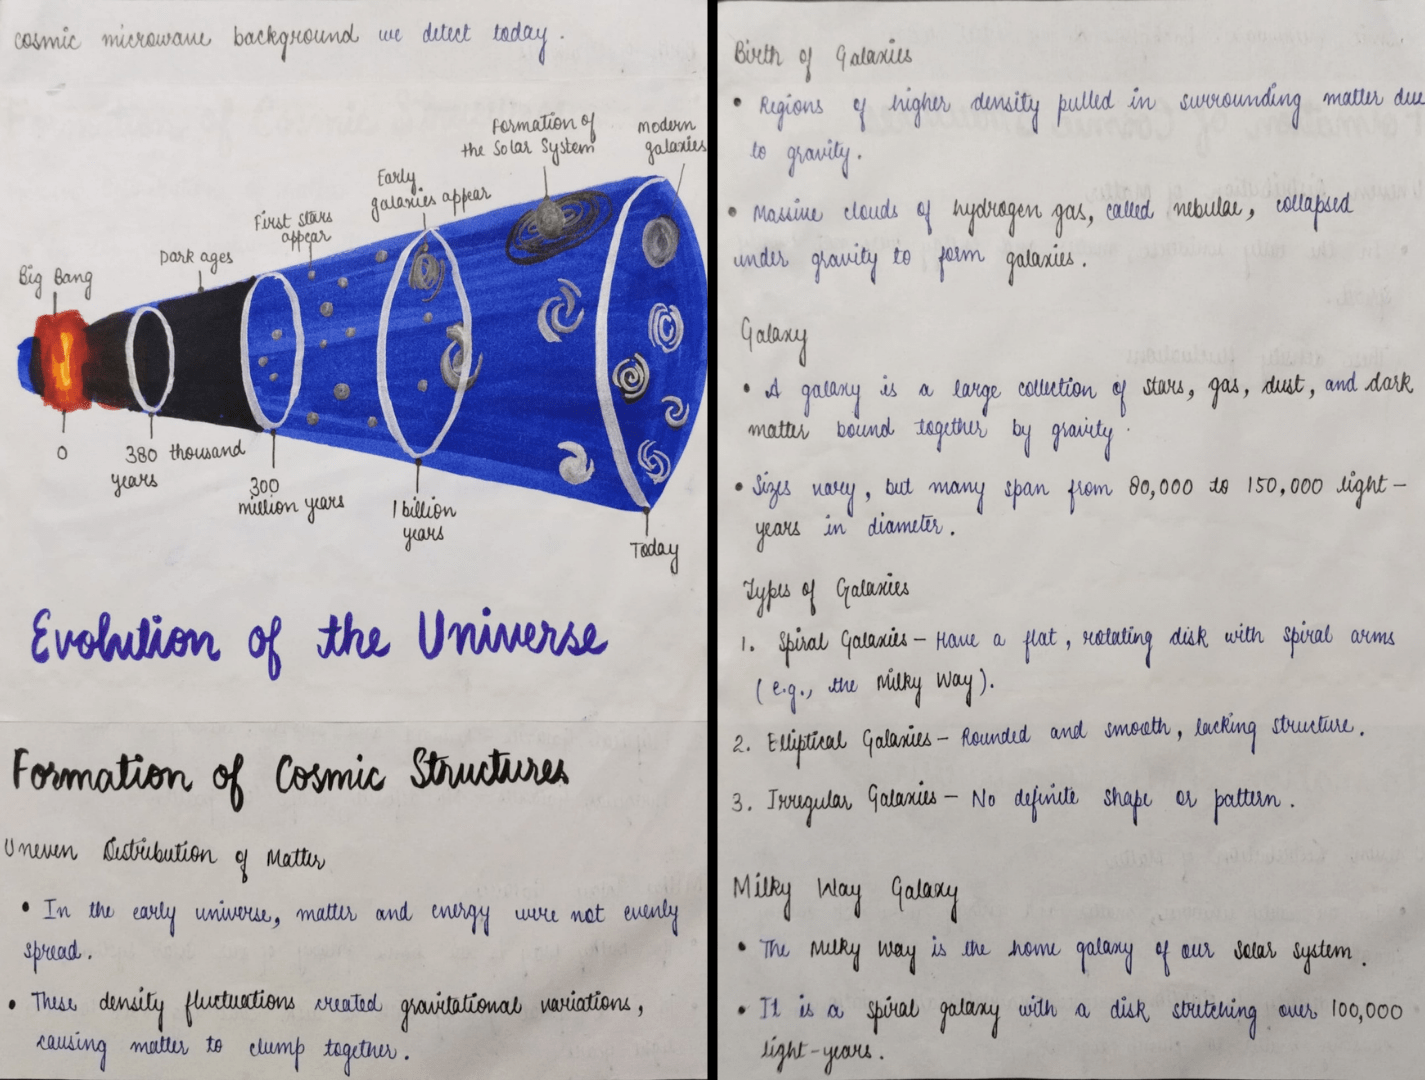 cosmic microwave background we detect today.
Formation of
the Solar System
modern
galaxies
Early
galaxies appear
First stars
appear
Dark ages
Big Bang
0
380 thousand
years
300
million years
1 billion
years
Today
Evolution of the Universe
Formation of Cosmic Structures
Uneven Distribution of Matter
• In the early universe, matter and energy were not evenly
spread.
• These density fluctuations created gravitational variations,
causing matter to clump together.
Birth of Galaxies
• Regions of higher density pulled in surrounding matter due
to gravity.
• Massive clouds of hydrogen gas, called nebulae, collapsed
under gravity to form galaxies.
Galaxy
• A galaxy is a large collection of stars, gas, dust, and dark
matter bound together by gravity.
• Sizes vary, but many span from 80,000 to 150,000 light-
years in diameter.
Types of Galaxies
1. Spiral Galaxies – Have a flat, rotating disk with spiral arms
(e.g., the Milky Way).
2. Elliptical Galaxies – Rounded and smooth, lacking structure.
3. Irregular Galaxies – No definite shape or pattern.
Milky Way Galaxy
• The Milky Way is the home galaxy of our solar system.
• It is a spiral galaxy with a disk stretching over 100,000
light-years.